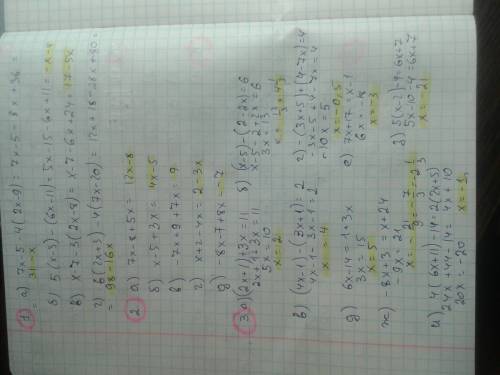 1 а) 7x-5-4(2x-9) = 7x-5-8x+36 =
= 31-x
б) 5(x-3)-(6x-11) = 5x-15-6x+11 = -x-4
в) x-7-3(2x-8) = x-7-6x+24 = 17-5x
г) 6(2x+3)-4(7x-20) = 12x+18-28x+80 =
= 98-16x
2 а) 7x-8+5x = 12x-8
б) x-5+3x = 4x-5
в) -7x+9+7x = 9
г) x+2-4x = 2-3x
д) -8x-7+8x = -7
3 а) (2x+1)+3x=11
2x+1+3x=11
5x=10
x=2
б) (x-5)-(2-2x)=6
x-5-2+2x=6
3x=13
в) (4x-1)-(3x+1)=2
4x-1-3x-1=2
x=4
г) -(3x+5)+(4-7x)=4
-3x-5+4-7x=4
-10x=5
x=-0,5
д) 6x-14=1+3x
3x=15
x=5
е) 7x+17=x-1
6x=-18
x=-3
ж) -8x-3=x+24
з) 5(x-2)-4=6x+7
5x-10-4=6x+7
x=-21
и) 4(6x+11)-14=2(2x+5)
24x+44-14=4x+10
20x=-20
x=-1